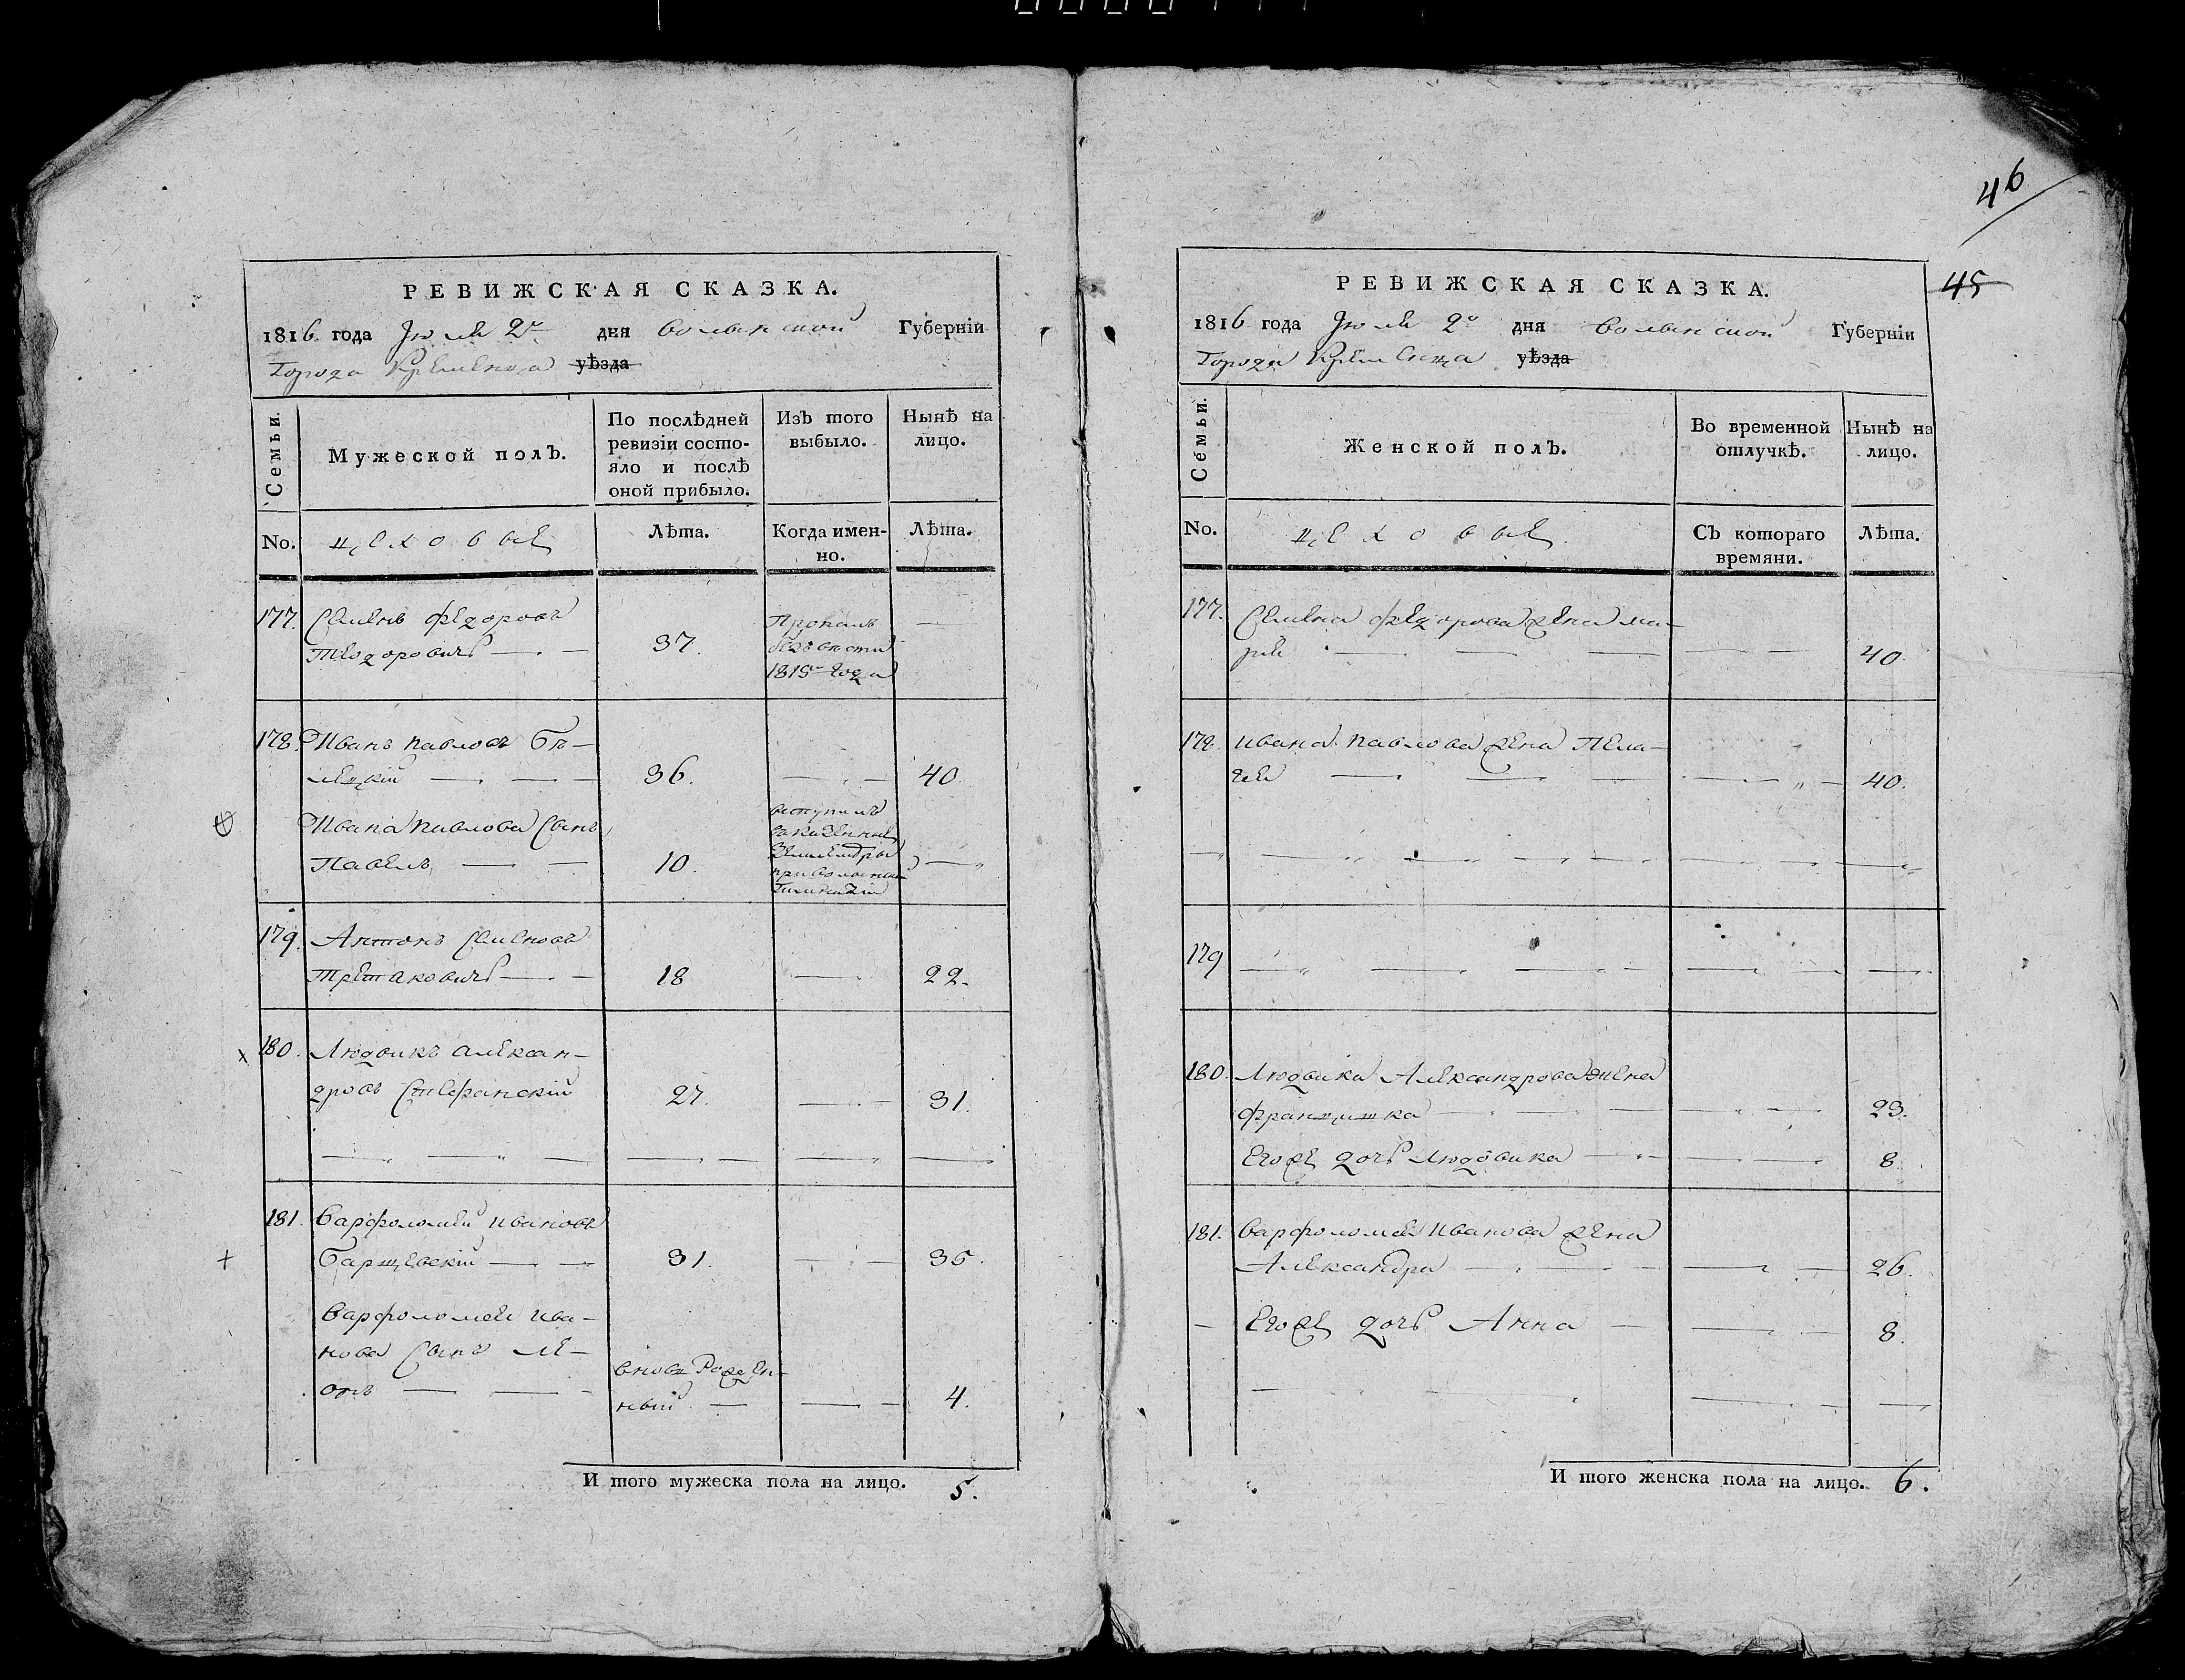 РЕВИЖСКАЯ СКАЗКА.
1816. года Июля 2го дня Волынской Губерніи
Города Кременца уѣзда
Семьи.
Мужеской полъ.
По послѣдней ревизіи состояло и послѣ оной прибыло.
Изъ того выбыло.
Нынѣ на лицо.
No.
цеховые
Лѣта.
Когда именно.
Лѣта.
177. Семенъ Федоровъ
Теодоровичъ — 37. —
Пропалъ
безъ вѣсти
1815го года
178. Иванъ Павловъ Бѣ-
лецкій — 36. — 40
Ивана Павлова Сынъ
Павелъ — 10. —
вступилъ
землемѣры
Гимназіи
179. Антонъ Семеновъ
Третаковичъ — 18 — 22.
180. Людвикъ Алексан-
дровъ Стефанскій 27. — 31.
181. Варфоломей Ивановъ
Барщевскій — 31. — 35.
Варфоломея Ива-
нова Сынъ Ле-
онъ —
вновь Рожден-
ный — 4.
И того мужеска пола на лицо. 5.
46
45
РЕВИЖСКАЯ СКАЗКА.
1816 года Июля 2го дня Волынской Губерніи
Города Кременца уѣзда
Семьи.
Женской полъ.
Во временной отлучкѣ.
Нынѣ на лицо.
No.
цеховые.
Съ котораго времяни.
Лѣта.
177. Семена Федорова жена Ма-
рія — 40
178. Ивана Павлова жена Пела-
гея — 40.
179
180. Людвика Александрова жена
Францишка — 23.
Егоже дочь Людовика — 8
181. Варфоломея Иванова жена
Александра — 26.
Егоже дочь Анна — 8.
И того женска пола на лицо. 6.